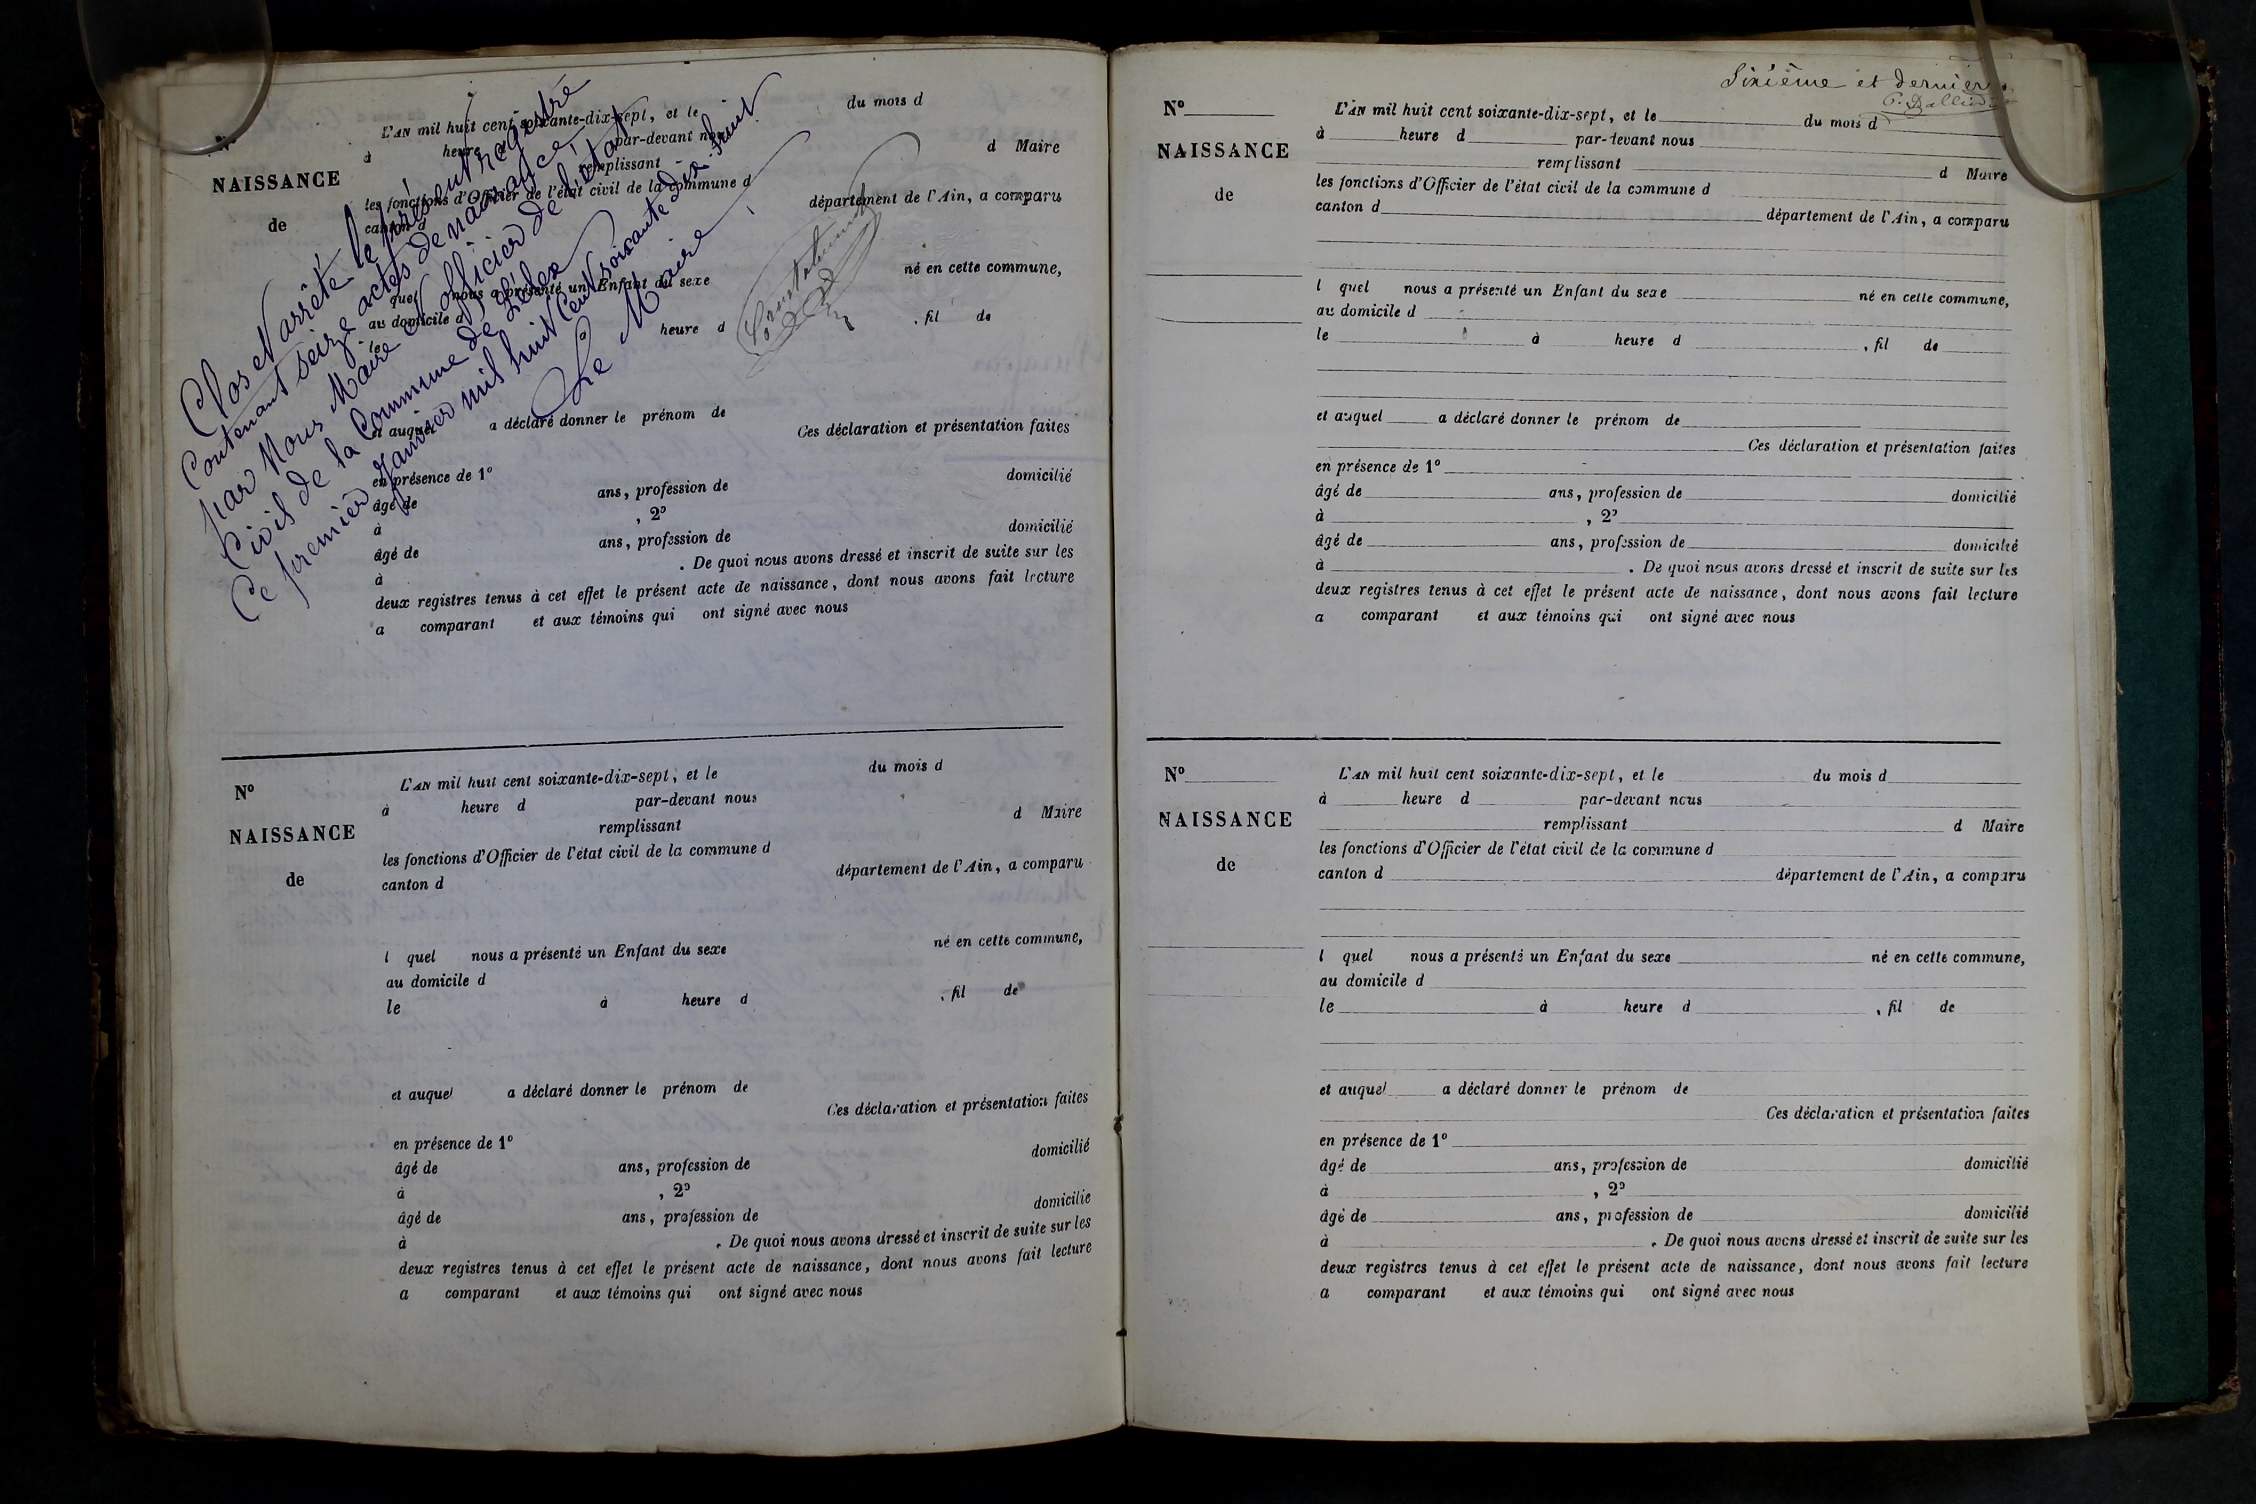 Clos et arrêté le présent registre
Contenant seize actes de naissance
par Nous Maire Officier de l'état
Civil de la Commune de Lélex
Ce premier Janvier mil huit Cent soixante dix-huit
Le Maire
N°
NAISSANCE
de
L'AN mil huit cent soixante-dix-sept, et le du mois d
à heure d par-devant nous
remplissant d Maire
les fonctions d'Officier de l'état civil de la commune d
canton d département de l'Ain, a comparu
quel nous a présenté un Enfant du sexe né en cette commune,
au domicile d
le heure d , fil de
et auquel a déclaré donner le prénom de
Ces déclaration et présentation faites
en présence de 1°
âgé de ans, profession de domicilié
à , 2°
âgé de ans, profession de domicilié
à . De quoi nous avons dressé et inscrit de suite sur les
deux registres tenus à cet effet le présent acte de naissance, dont nous avons fait lecture
a comparant et aux témoins qui ont signé avec nous
N°
NAISSANCE
de
L'AN mil huit cent soixante-dix-sept, et le du mois d
à heure d par-devant nous
remplissant d Maire
les fonctions d'Officier de l'état civil de la commune d
canton d département de l'Ain, a comparu
l quel nous a présenté un Enfant du sexe né en cette commune,
au domicile d
le à heure d , fil de
et auquel a déclaré donner le prénom de
Ces déclaration et présentation faites
en présence de 1°
âgé de ans, profession de domicilié
à , 2°
âgé de ans, profession de domicilié
à . De quoi nous avons dressé et inscrit de suite sur les
deux registres tenus à cet effet le présent acte de naissance, dont nous avons fait lecture
a comparant et aux témoins qui ont signé avec nous
Sixième et dernier
N°
NAISSANCE
de
L'AN mil huit cent soixante-dix-sept, et le du mois d
à heure d par-devant nous
remplissant d Maire
les fonctions d'Officier de l'état civil de la commune d
canton d département de l'Ain, a comparu
l quel nous a présenté un Enfant du sexe né en cette commune,
au domicile d
le à heure d , fil de
et auquel a déclaré donner le prénom de
Ces déclaration et présentation faites
en présence de 1°
âgé de ans, profession de domicilié
à , 2°
âgé de ans, profession de domicilié
à . De quoi nous avons dressé et inscrit de suite sur les
deux registres tenus à cet effet le présent acte de naissance, dont nous avons fait lecture
a comparant et aux témoins qui ont signé avec nous
N°
NAISSANCE
de
L'AN mil huit cent soixante-dix-sept, et le du mois d
à heure d par-devant nous
remplissant d Maire
les fonctions d'Officier de l'état civil de la commune d
canton d département de l'Ain, a comparu
l quel nous a présenté un Enfant du sexe né en cette commune,
au domicile d
le à heure d , fil de
et auquel a déclaré donner le prénom de
Ces déclaration et présentation faites
en présence de 1°
âgé de ans, profession de domicilié
à , 2°
âgé de ans, profession de domicilié
à . De quoi nous avons dressé et inscrit de suite sur les
deux registres tenus à cet effet le présent acte de naissance, dont nous avons fait lecture
a comparant et aux témoins qui ont signé avec nous